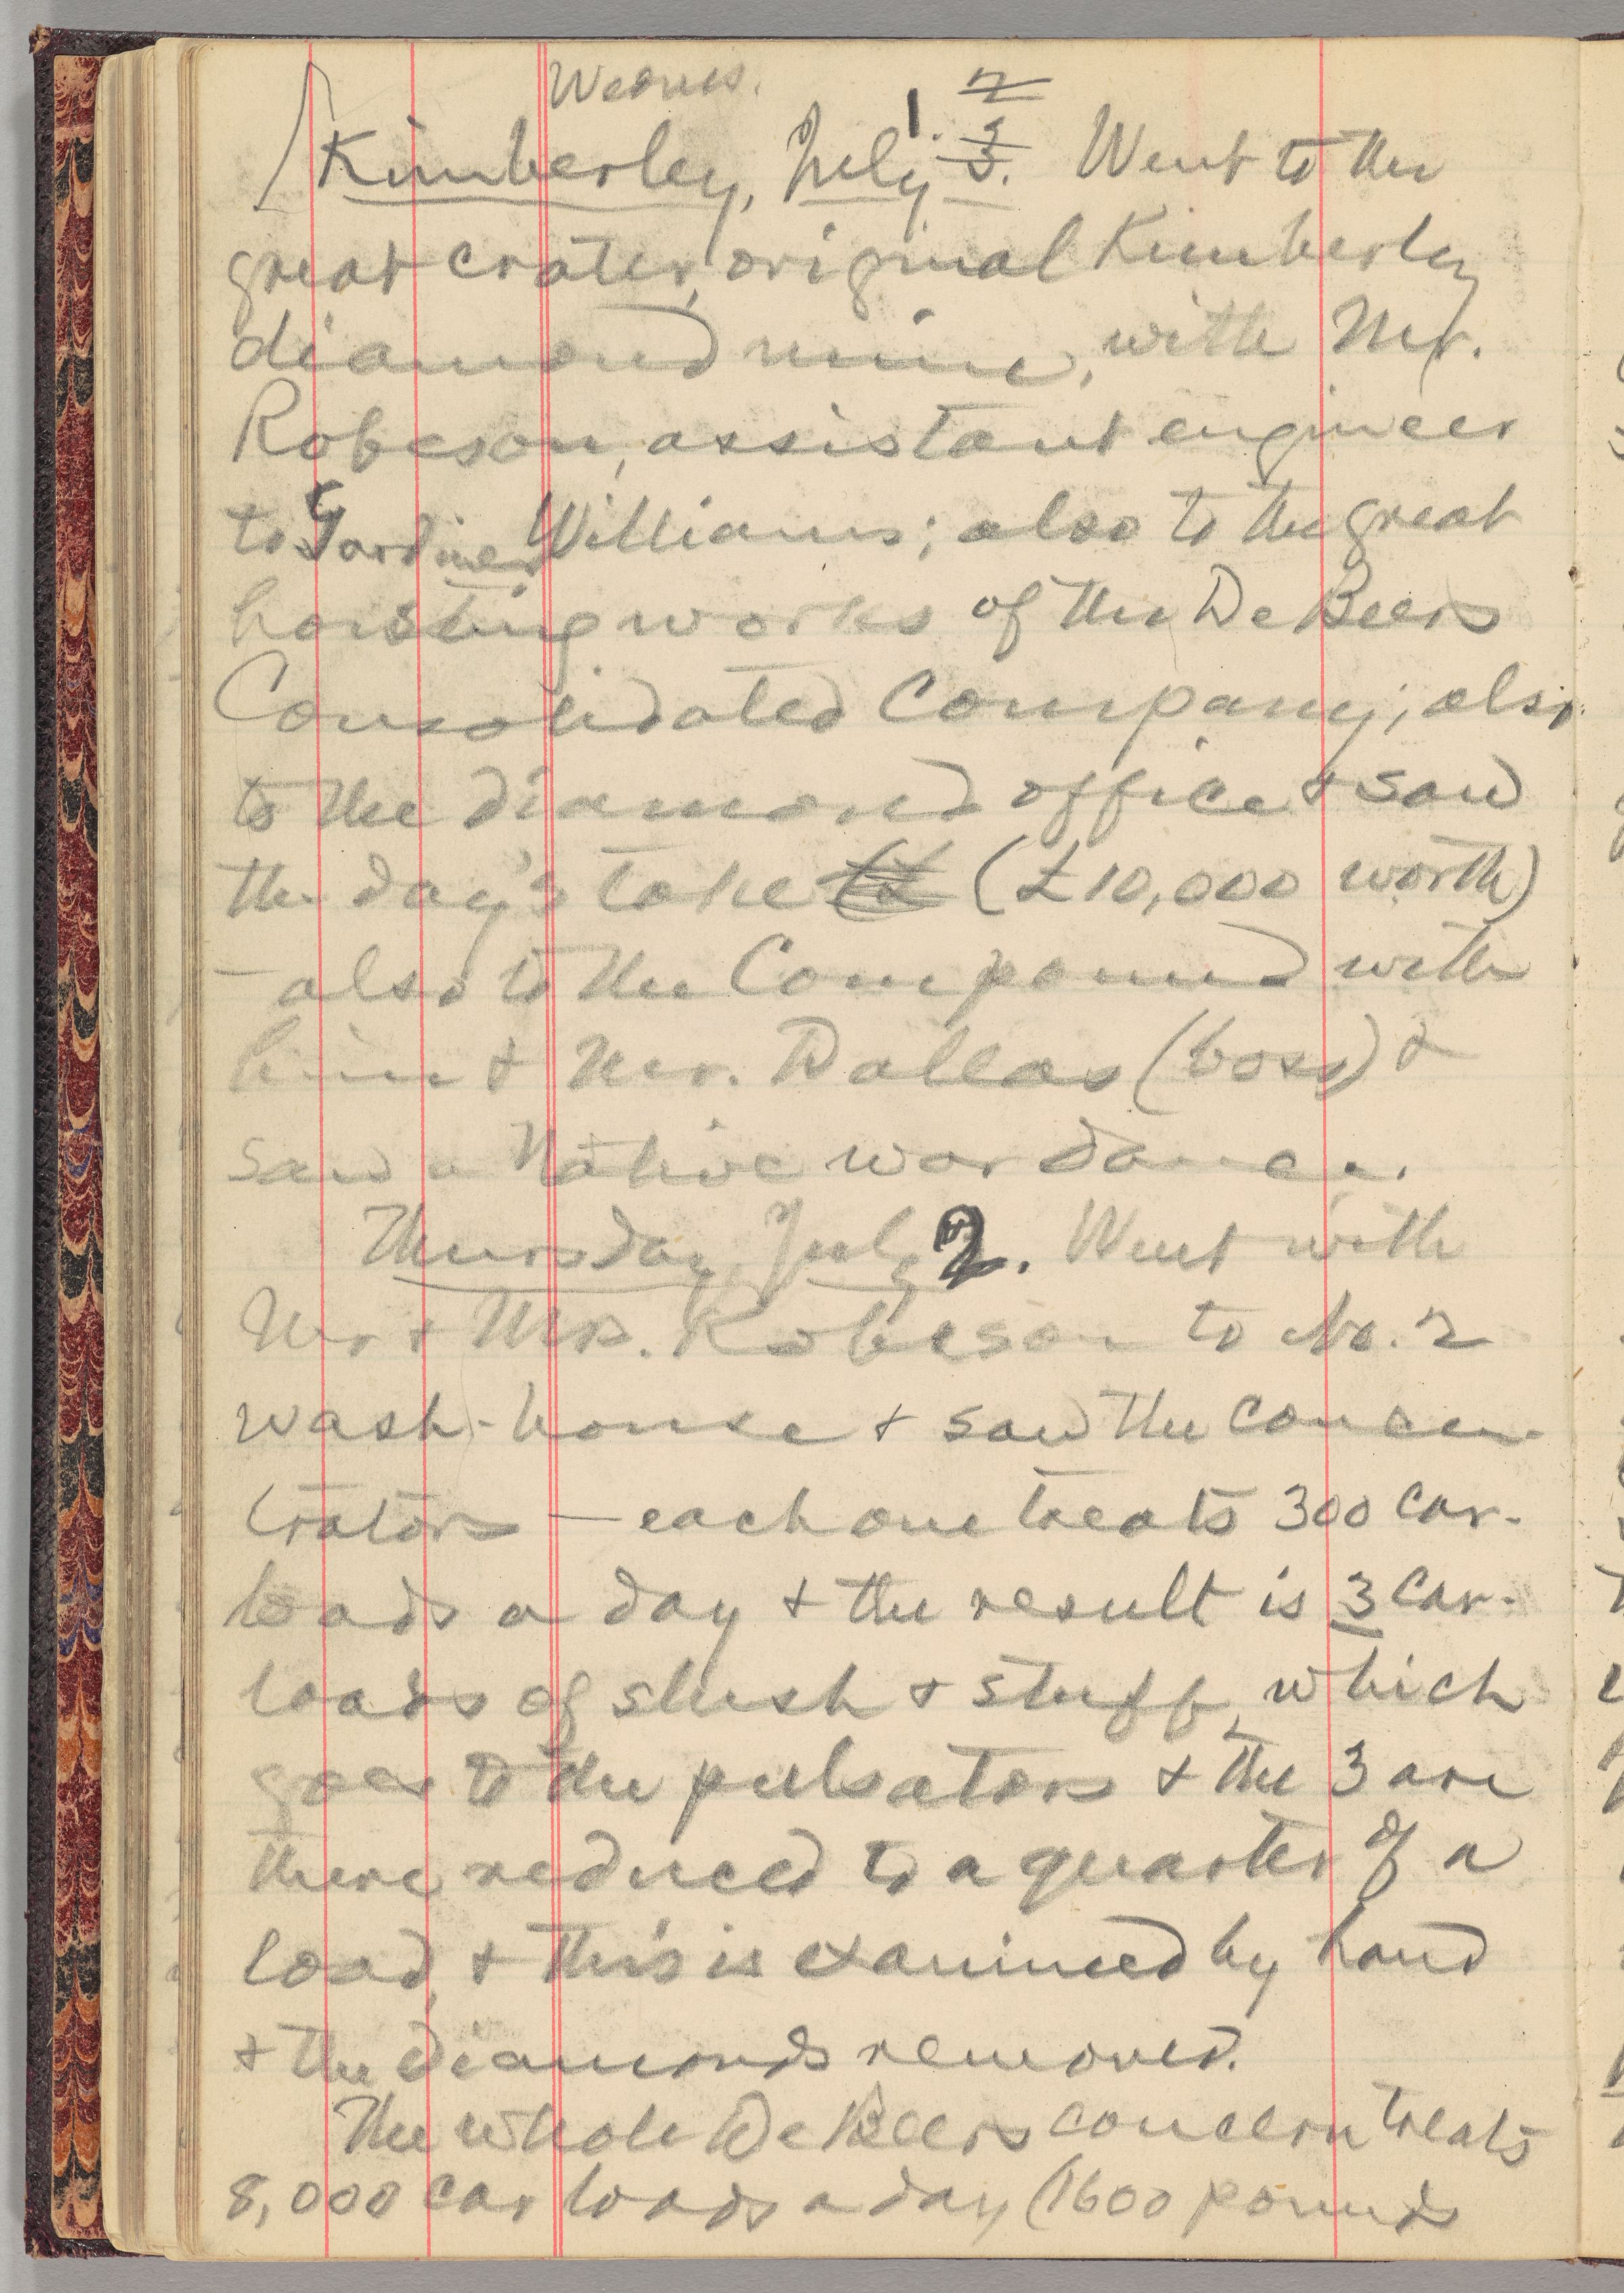 Wednes.
Kimberley, July 1. 2 3. Went to the
great crater, original Kimberley
diamond mine, with Mr.
Robeson, assistant engineer
to Gardiner Williams; also to the great
hoisting works of the De Beers
Consolidated Company; also
to the diamond office & saw
the day's take (£ (£10,000 worth)
— also to the Compound with
him & Mr. Dallas (boss) &
saw a Native war dance.
Thursday, July 2. Went with
Mr & Mrs. Robeson to No. 2
wash-house & saw the concen-
trators — each one treats 300 car-
loads a day & the result is 3 car-
loads of slush & stuff, which
goes to the pulsators & the 3 are
there reduced to a quarter of a
load, & this is examined by hand
& the diamonds removed.
The whole De Beers concern treats
8,000 car loads a day (1600 pounds